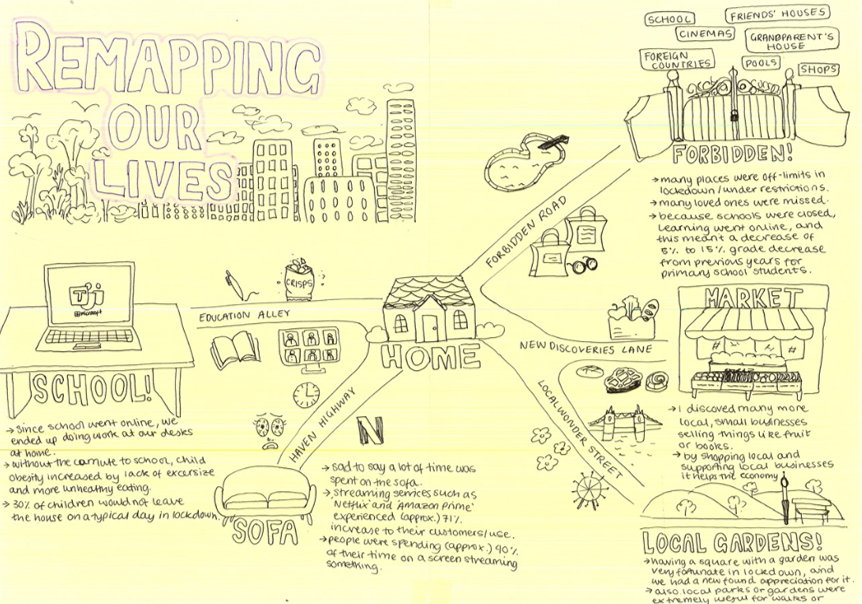 REMAPPING
OUR
LIVES
SCHOOL
FRIENDS' HOUSES
CINEMAS
GRANDPARENT'S
HOUSE
FOREIGN
COUNTRIES
POOLS
SHOPS
FORBIDDEN!
→many places were off-limits in
lockdown/under restrictions.
→many loved ones were missed.
→because schools were closed,
learning went online, and
this meant a decrease of
5% to 15% grade decrease
from previous years for
primary school students.
FORBIDDEN ROAD
CRISPS
EDUCATION ALLEY
HOME
NEW DISCOVERIES LANE
MARKET
→I discovered many more
local, small businesses
selling things like fruit
or books.
→by shopping local and
supporting local businesses
it helps the economy!
LOCAL WONDER STREET
HAVEN HIGHWAY
N
SCHOOL!
→since school went online, we
ended up doing work at our desks
at home.
→without the comute to school, child
obesity increased by lack of excersize
and more unhealthy eating.
→30% of children would not leave
the house on a typical day in lockdown.
SOFA
→sad to say a lot of time was
spent on the sofa.
→streaming services such as
'Netflix' and 'Amazon Prime'
experienced (approx.) 71%
increase to their customers/use.
→people were spending (approx.) 40%
of their time on a screen streaming
something.
LOCAL GARDENS!
→having a square with a garden was
very fortunate in lockdown, and
we had a new found appreciation for it.
→also local parks or gardens were
extremely useful for walks or